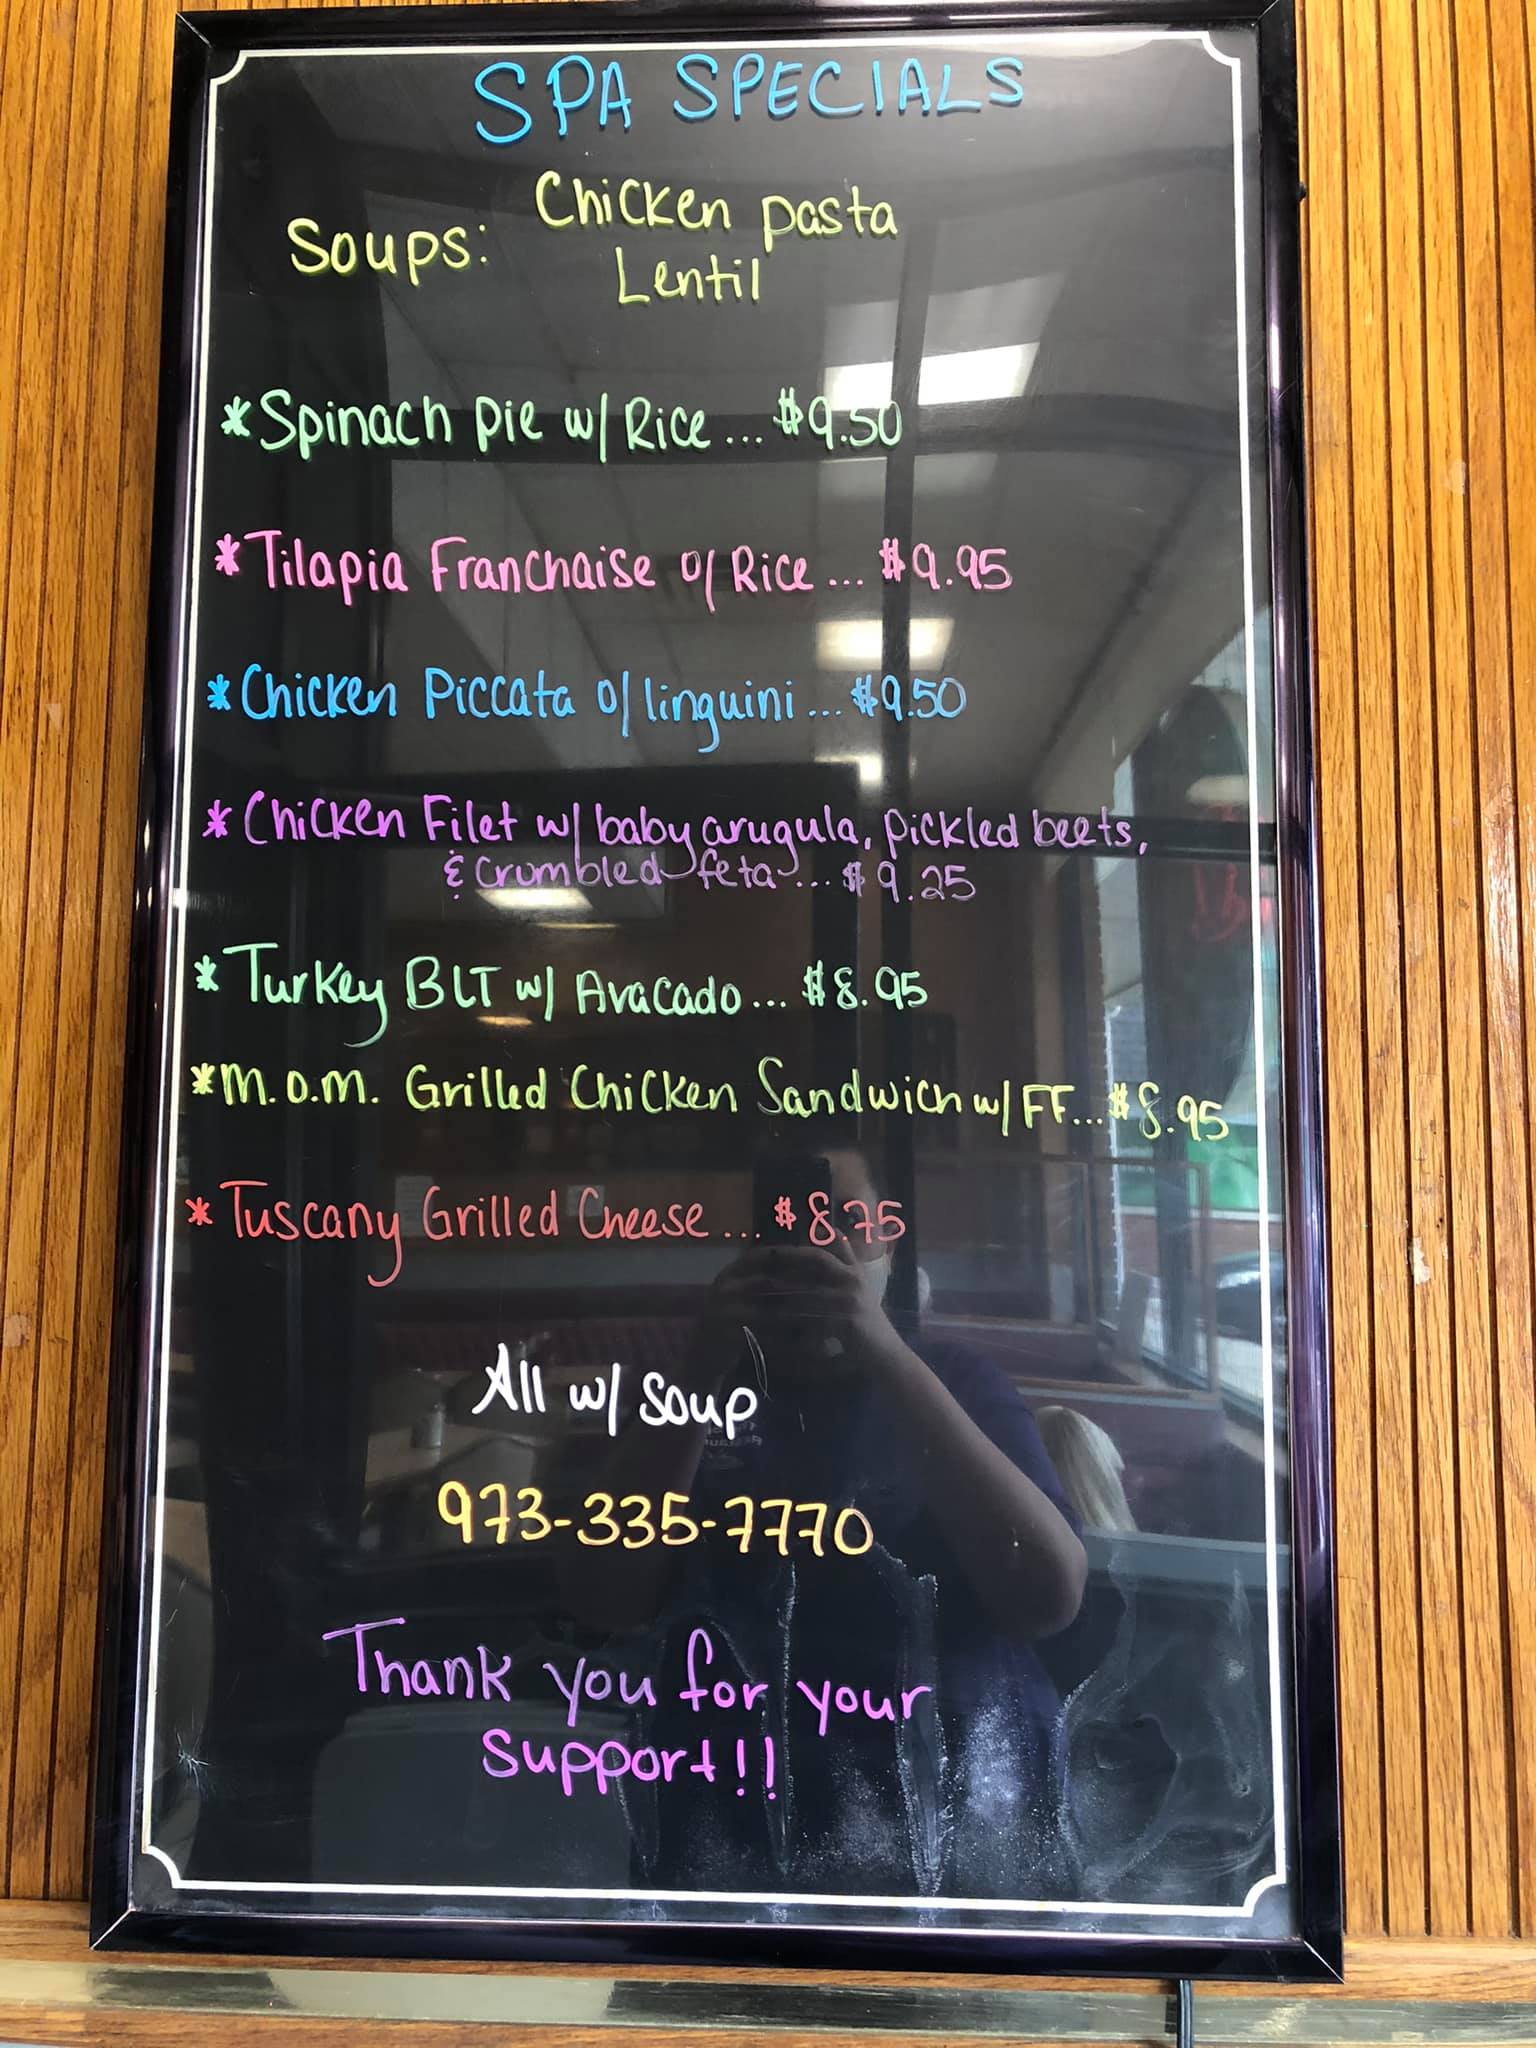 SPA SPECIALS
Soups: Chicken pasta
Lentil
*Spinach pie w/ Rice ... $9.50
*Tilapia Franchaise o/ Rice ... $9.95
*Chicken Piccata o/ linguini ... $9.50
*Chicken Filet w/ baby arugula, pickled beets,
& crumbled feta ... $9.25
*Turkey BLT w/ Avacado ... $8.95
*M.O.M. Grilled Chicken Sandwich w/ FF... $8.95
*Tuscany Grilled Cheese ... $8.75
All w/ soup
973-335-7770
Thank you for your
support!!